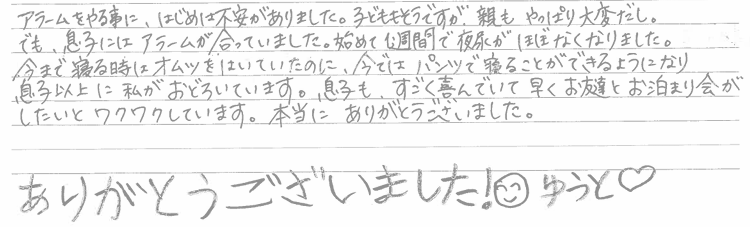 アラームをやる事に、はじめは不安がありました。子どももそうですが、親も やっぱり大変だし。
でも、息子には アラームが合っていました。始めて1週間で夜尿が ほぼなくなりました。
今まで寝る時はオムツをはいていたのに、今ではパンツで寝ることができるようになり
息子以上に私がおどろいています。息子も、すごく喜んでいて早くお友達とお泊まり会が
したいとワクワクしています。本当に ありがとうございました。
ありがとうございました!😊ゆうと♡